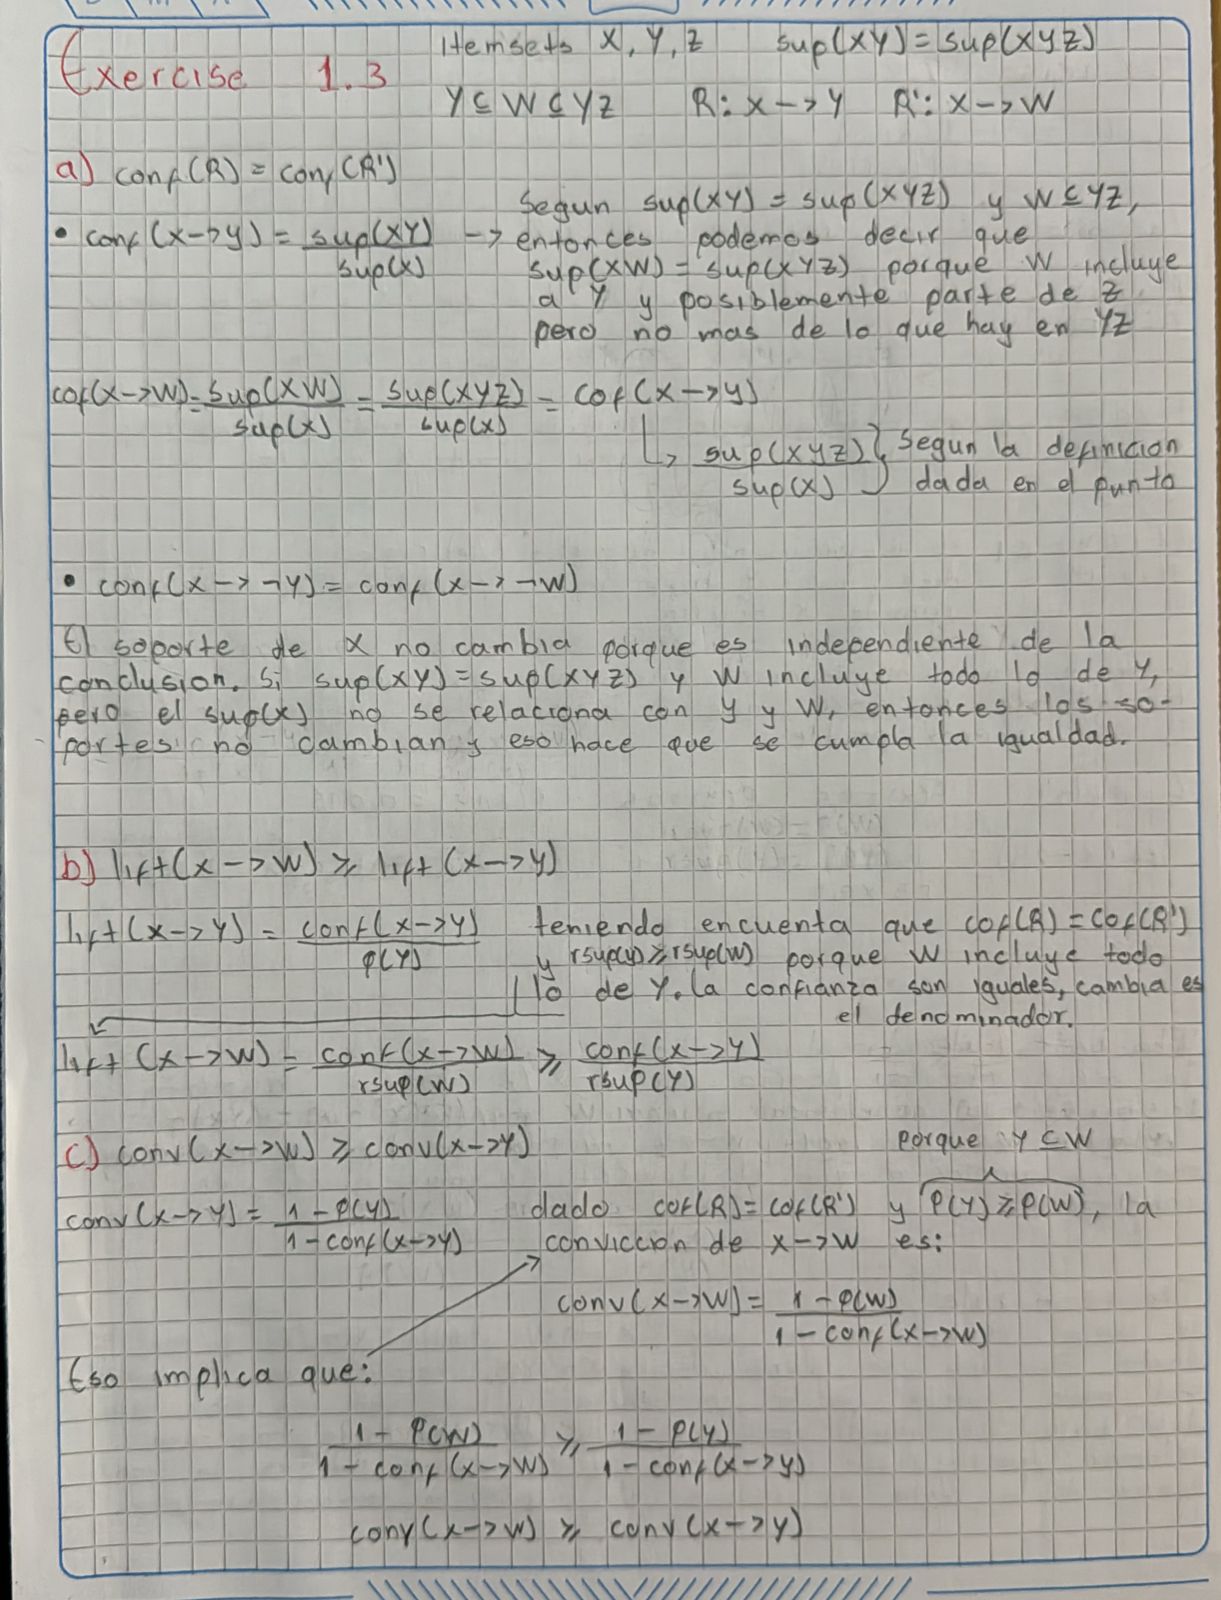 Exercise 1.3
Itemsets X, Y, Z sup(XY) = sup(XYZ)
Y ⊆ W ⊆ YZ R: X -> Y R': X -> W
a) conf(R) = conf(R')
• conf(X->Y) = sup(XY) / sup(X) -> Segun sup(XY) = sup(XYZ) y W ⊆ YZ,
entonces podemos decir que
sup(XW) = sup(XYZ) porque W incluye
a Y y posiblemente parte de Z
pero no mas de lo que hay en YZ
cof(X->W) = sup(XW) / sup(X) = sup(XYZ) / sup(X) = cof(X->Y)
↳ sup(XYZ) / sup(X) } Segun la definicion
dada en el punto
• conf(X->¬Y) = conf(X->¬W)
El soporte de X no cambia porque es independiente de la
conclusion. Si sup(XY) = sup(XYZ) y W incluye todo lo de Y,
pero el sup(X) no se relaciona con Y y W, entonces los so-
portes no cambian y eso hace que se cumpla la igualdad.
b) lift(X->W) ≥ lift(X->Y)
lift(X->Y) = conf(X->Y) / P(Y) teniendo encuenta que cof(R) = cof(R')
y rsup(Y) ≥ rsup(W) porque W incluye todo
lo de Y. La confianza son iguales, cambia es
el denominador.
lift(X->W) = conf(X->W) / rsup(W) ≥ conf(X->Y) / rsup(Y)
c) conv(X->W) ≥ conv(X->Y)
porque Y ⊆ W
conv(X->Y) = 1 - P(Y) / 1 - conf(X->Y) dado cof(R) = cof(R') y P(Y) ≥ P(W), la
conviccion de X->W es:
conv(X->W) = 1 - P(W) / 1 - conf(X->W)
Eso implica que:
1 - P(W) / 1 - conf(X->W) ≥ 1 - P(Y) / 1 - conf(X->Y)
conv(X->W) ≥ conv(X->Y)